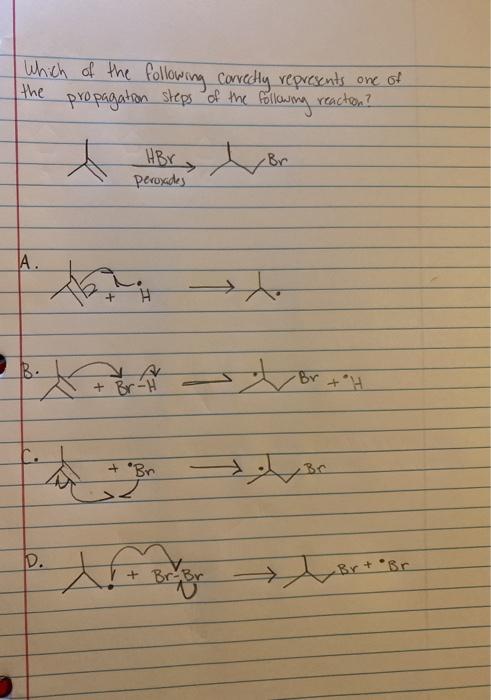 Which of the following correctly represents one of
the propagation steps of the following reaction?
HBr
peroxides
Br
A.
+ •H
B.
+ Br-H
Br + •H
C.
+ •Br
Br
D.
+ Br-Br
Br + •Br